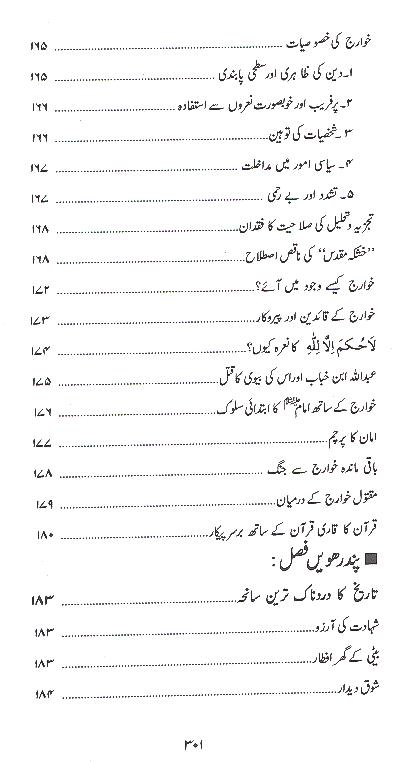 خوارج کی خصوصیات ............ ۱۶۵
۱۔ دین کی ظاہری اور سطحی پابندی ............ ۱۶۵
۲۔ پرفریب اور خوبصورت نعروں سے استفادہ ............ ۱۶۶
۳۔ شخصیات کی توہین ............ ۱۶۶
۴۔ سیاسی امور میں مداخلت ............ ۱۶۷
۵۔ تشدد اور بے رحمی ............ ۱۶۷
تجزیہ و تحلیل کی صلاحیت کا فقدان ............ ۱۶۸
”خشکہ مقدس“ کی ناقص اصطلاح ............ ۱۶۸
خوارج کیسے وجود میں آئے؟ ............ ۱۷۲
خوارج کے قائدین اور پیروکار ............ ۱۷۳
لَاحُکمَ اِلَّا لِلّٰہِ کا نعرہ کیوں؟ ............ ۱۷۴
عبداللہ ابن خباب اور اس کی بیوی کا قتل ............ ۱۷۵
خوارج کے ساتھ امامؑ کا ابتدائی سلوک ............ ۱۷۶
امان کا پرچم ............ ۱۷۷
باقی ماندہ خوارج سے جنگ ............ ۱۷۸
مقتول خوارج کے درمیان ............ ۱۷۹
قرآن کا قاری قرآن کے ساتھ برسرپیکار ............ ۱۸۰
■ پندرھویں فصل:
تاریخ کا دردناک ترین سانحہ ............ ۱۸۳
شہادت کی آرزو ............ ۱۸۳
بیٹی کے گھر افطار ............ ۱۸۳
شوق دیدار ............ ۱۸۴
۳۰۱